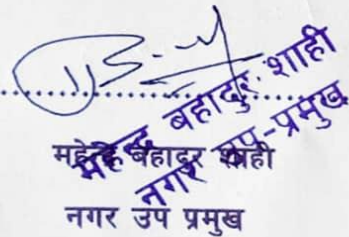 महेन्द्र बहादुर शाही
नगर उप-प्रमुख
महेन्द्र बहादुर शाही
नगर उप प्रमुख